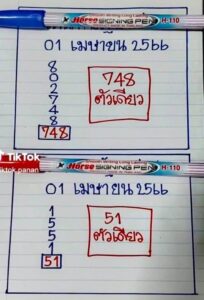 Horse SIGNING PEN H-110
01 เมษายน 2566
8
0
2
7
4
8
748
748
ตัวเดียว
TikTok
Tiktok panan
Horse SIGNING PEN H-110
01 เมษายน 2566
1
5
5
1
51
51
ตัวเดียว